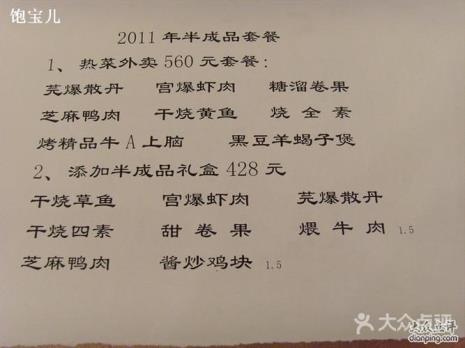 饱宝儿
2011年半成品套餐
1、热菜外卖560元套餐:
芫爆散丹 宫爆虾肉 糖溜卷果
芝麻鸭肉 干烧黄鱼 烧全素
烤精品牛A上脑 黑豆羊蝎子煲
2、添加半成品礼盒428元
干烧草鱼 宫爆虾肉 芫爆散丹
干烧四素 甜卷果 煨牛肉 1.5
芝麻鸭肉 酱炒鸡块 1.5
大众点评
大众点评
dianping.com